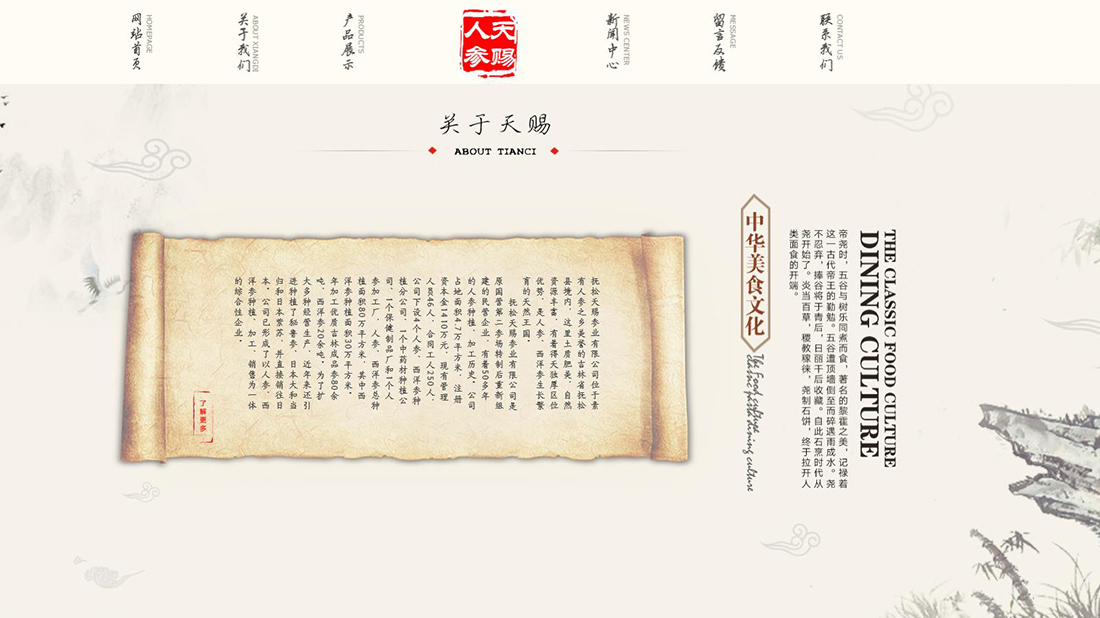 网站首页
HOMEPAGE
关于我们
ABOUT XIANGDI
产品展示
PRODUCTS
天赐
人参
新闻中心
NEWS CENTER
留言反馈
MESSAGE
联系我们
CONTACT US
关于天赐
ABOUT TIANCI
THE CLASSIC FOOD CULTURE
DINING CULTURE
帝尧时，五谷与树乐同煮而食，著名的藜藿之美，记禄着
这一古代帝王的勤勉。五谷遭顶墙倒至而碎遇雨成水。尧
不忍弃，捧谷将于青后，日丽干后收藏。自此石烹时代从
尧开始了。炎当百草，稷教稼徕，尧制石饼，终于拉开人
类面食的开端。
中华美食文化
The Food culture
classic pasta dining culture
抚松天赐参业有限公司位于素
有人参之乡美誉的吉林省抚松
县境内，这里土质肥美，自然
资源丰富，有着得天独厚区位
优势，是人参、西洋参生长繁
育的天然王国。
抚松天赐参业有限公司是
原国营第二参场转制后重新组
建的民营企业，有着50多年
的人参种植，加工历史。公司
占地面积4.7万平方米，注册
资本金1410万元，现有管理
人员46人，合同工人230人，
公司下设4个人参、西洋参种
植分公司，一个中药材种植公
司，一个保健制品厂和一个人
参加工厂，人参、西洋参总种
植面积80万平方米，其中西
洋参种植面积30万平方米，
年加工优质吉林成品参80余
吨，西洋参20余吨。为了扩
大多种经营生产，近年来还引
进种植了秘鲁参、日本大和当
归和日本紫苏，并直接销往日
本。公司已形成了以人参、西
洋参种植、加工、销售为一体
的综合性企业。
了解更多